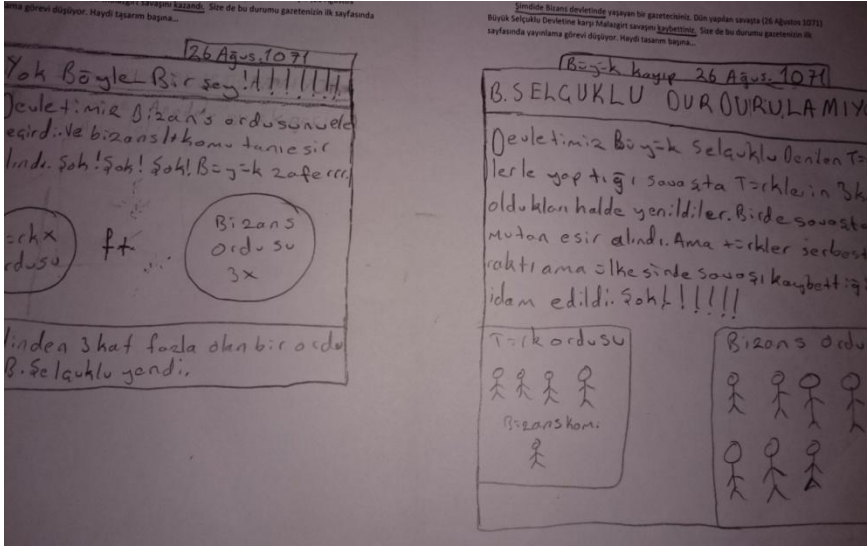 ama görevi düşüyor. Haydi tasarım başına...
Malazgirt savaşını kazandı. Size de bu durumu gazetenizin ilk sayfasında
26 Ağus. 1071
Yok Böyle Bir şey!!!!!!!!
Devletimiz Bizans ordusunu ele
egirdi. Ve bizanslı komutanı esir
lındı. Şok! Şok! Şok! Büyük zaferrrr.
ürk x
rdusu
ft
Bizans
ordusu
3x
linden 3 kat fazla olan bir ordu
B. Selçuklu yendi.
Şimdide Bizans devletinde yaşayan bir gazetecisiniz. Dün yapılan savaşta (26 Ağustos 1071)
Büyük Selçuklu Devletine karşı Malazgirt savaşını kaybettiniz. Size de bu durumu gazetenizin ilk
sayfasında yayınlama görevi düşüyor. Haydi tasarım başına...
Büyük kayıp 26 Ağus. 1071
B. SELÇUKLU DURDURULAMIY
Devletimiz Büyük Selçuklu Denilen T=
lerle yaptığı savaşta Türklerin 3k
oldukları halde yenildiler. Birde savaşt
mutan esir alındı. Ama türkler serbest
raktı ama ülkesinde savaşı kaybettiği
idam edildi. Şok!!!!!!
Türk ordusu
Bizans kom.
Bizans ordu